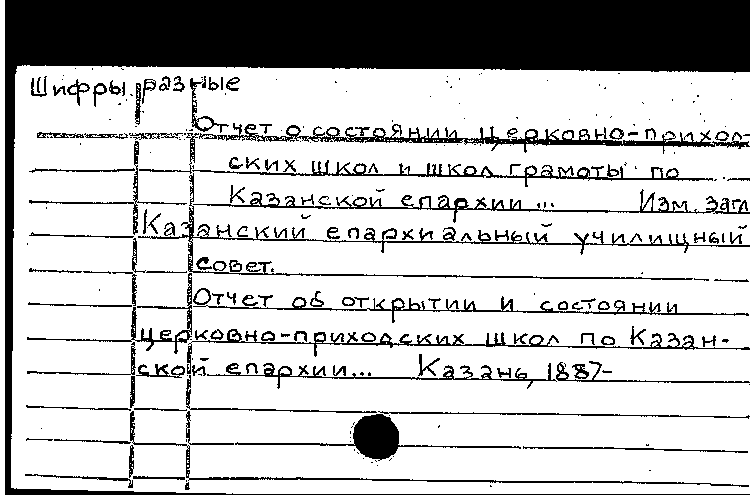 Шифры разные
Отчет о состоянии церковно-приход-
ских школ и школ грамоты по
Казанской епархии... Изм. загл
Казанский епархиальный училищный
совет.
Отчет об открытии и состоянии
церковно-приходских школ по Казан-
ской епархии... Казань, 1887-